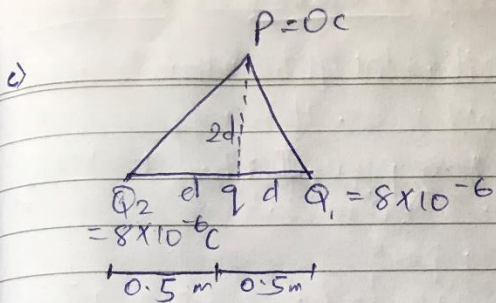 P=0c
c)
2d
Q2 d q d Q1 = 8×10⁻⁶
= 8×10⁻⁶C
0.5 m 0.5m